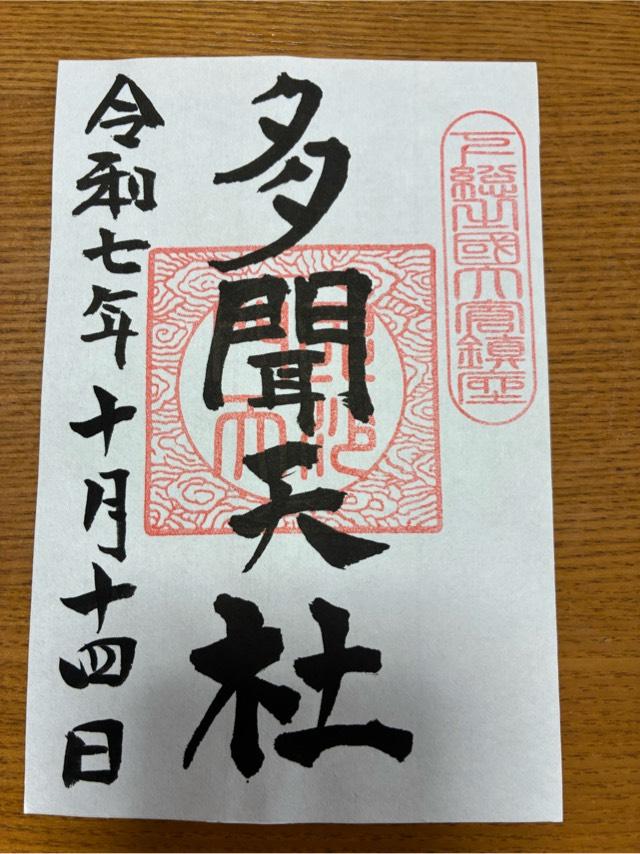 下総之國大宮鎮座
多聞天社
令和七年十月十四日